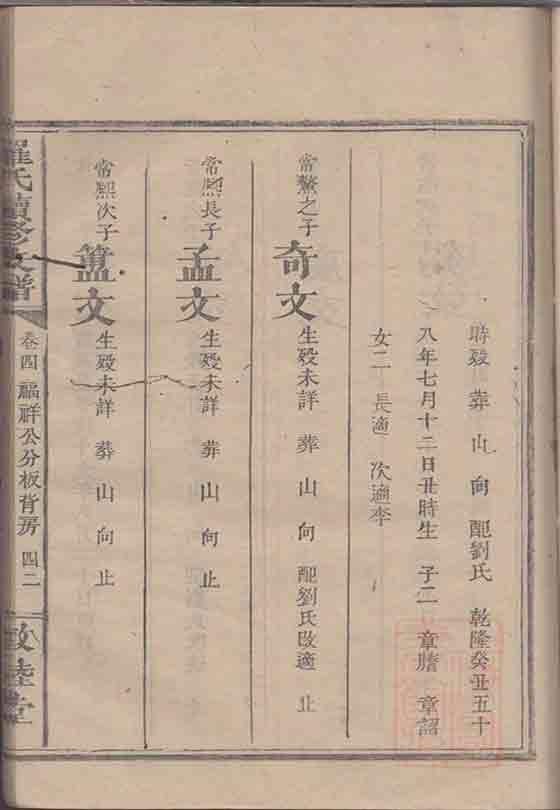 時殁 葬 山 向 配劉氏 乾隆癸丑五十
八年七月十二日丑時生 子二 章贍 章詔
女二 長適 次適李
常鰲之子 奇文 生殁未詳 葬 山 向 配劉氏改適 止
常熙長子 孟文 生殁未詳 葬 山 向 止
常熙次子 簋文 生殁未詳 葬 山 向 止
羅氏續修支譜 卷四 福祥公分板背房 四二 敦睦堂